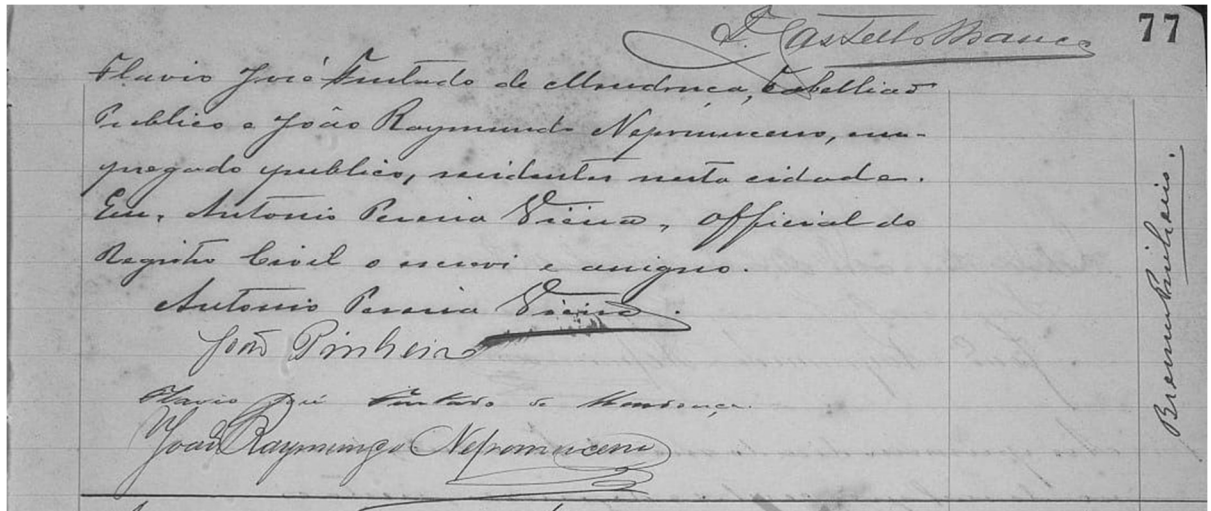 T. Castello Branco
77
Flavio José Furtado de Mendonça, Tabellião
Publico e João Raymundo Nepomuceno, em-
pregado publico, residentes nesta cidade.
Eu, Antonio Pereira Vieira, Official do
Registro Civil o escrevi e assigno.
Antonio Pereira Vieira.
João Pinheiro
Flavio José Furtado de Mendonça.
João Raymundo Nepomuceno
Pinheiro.